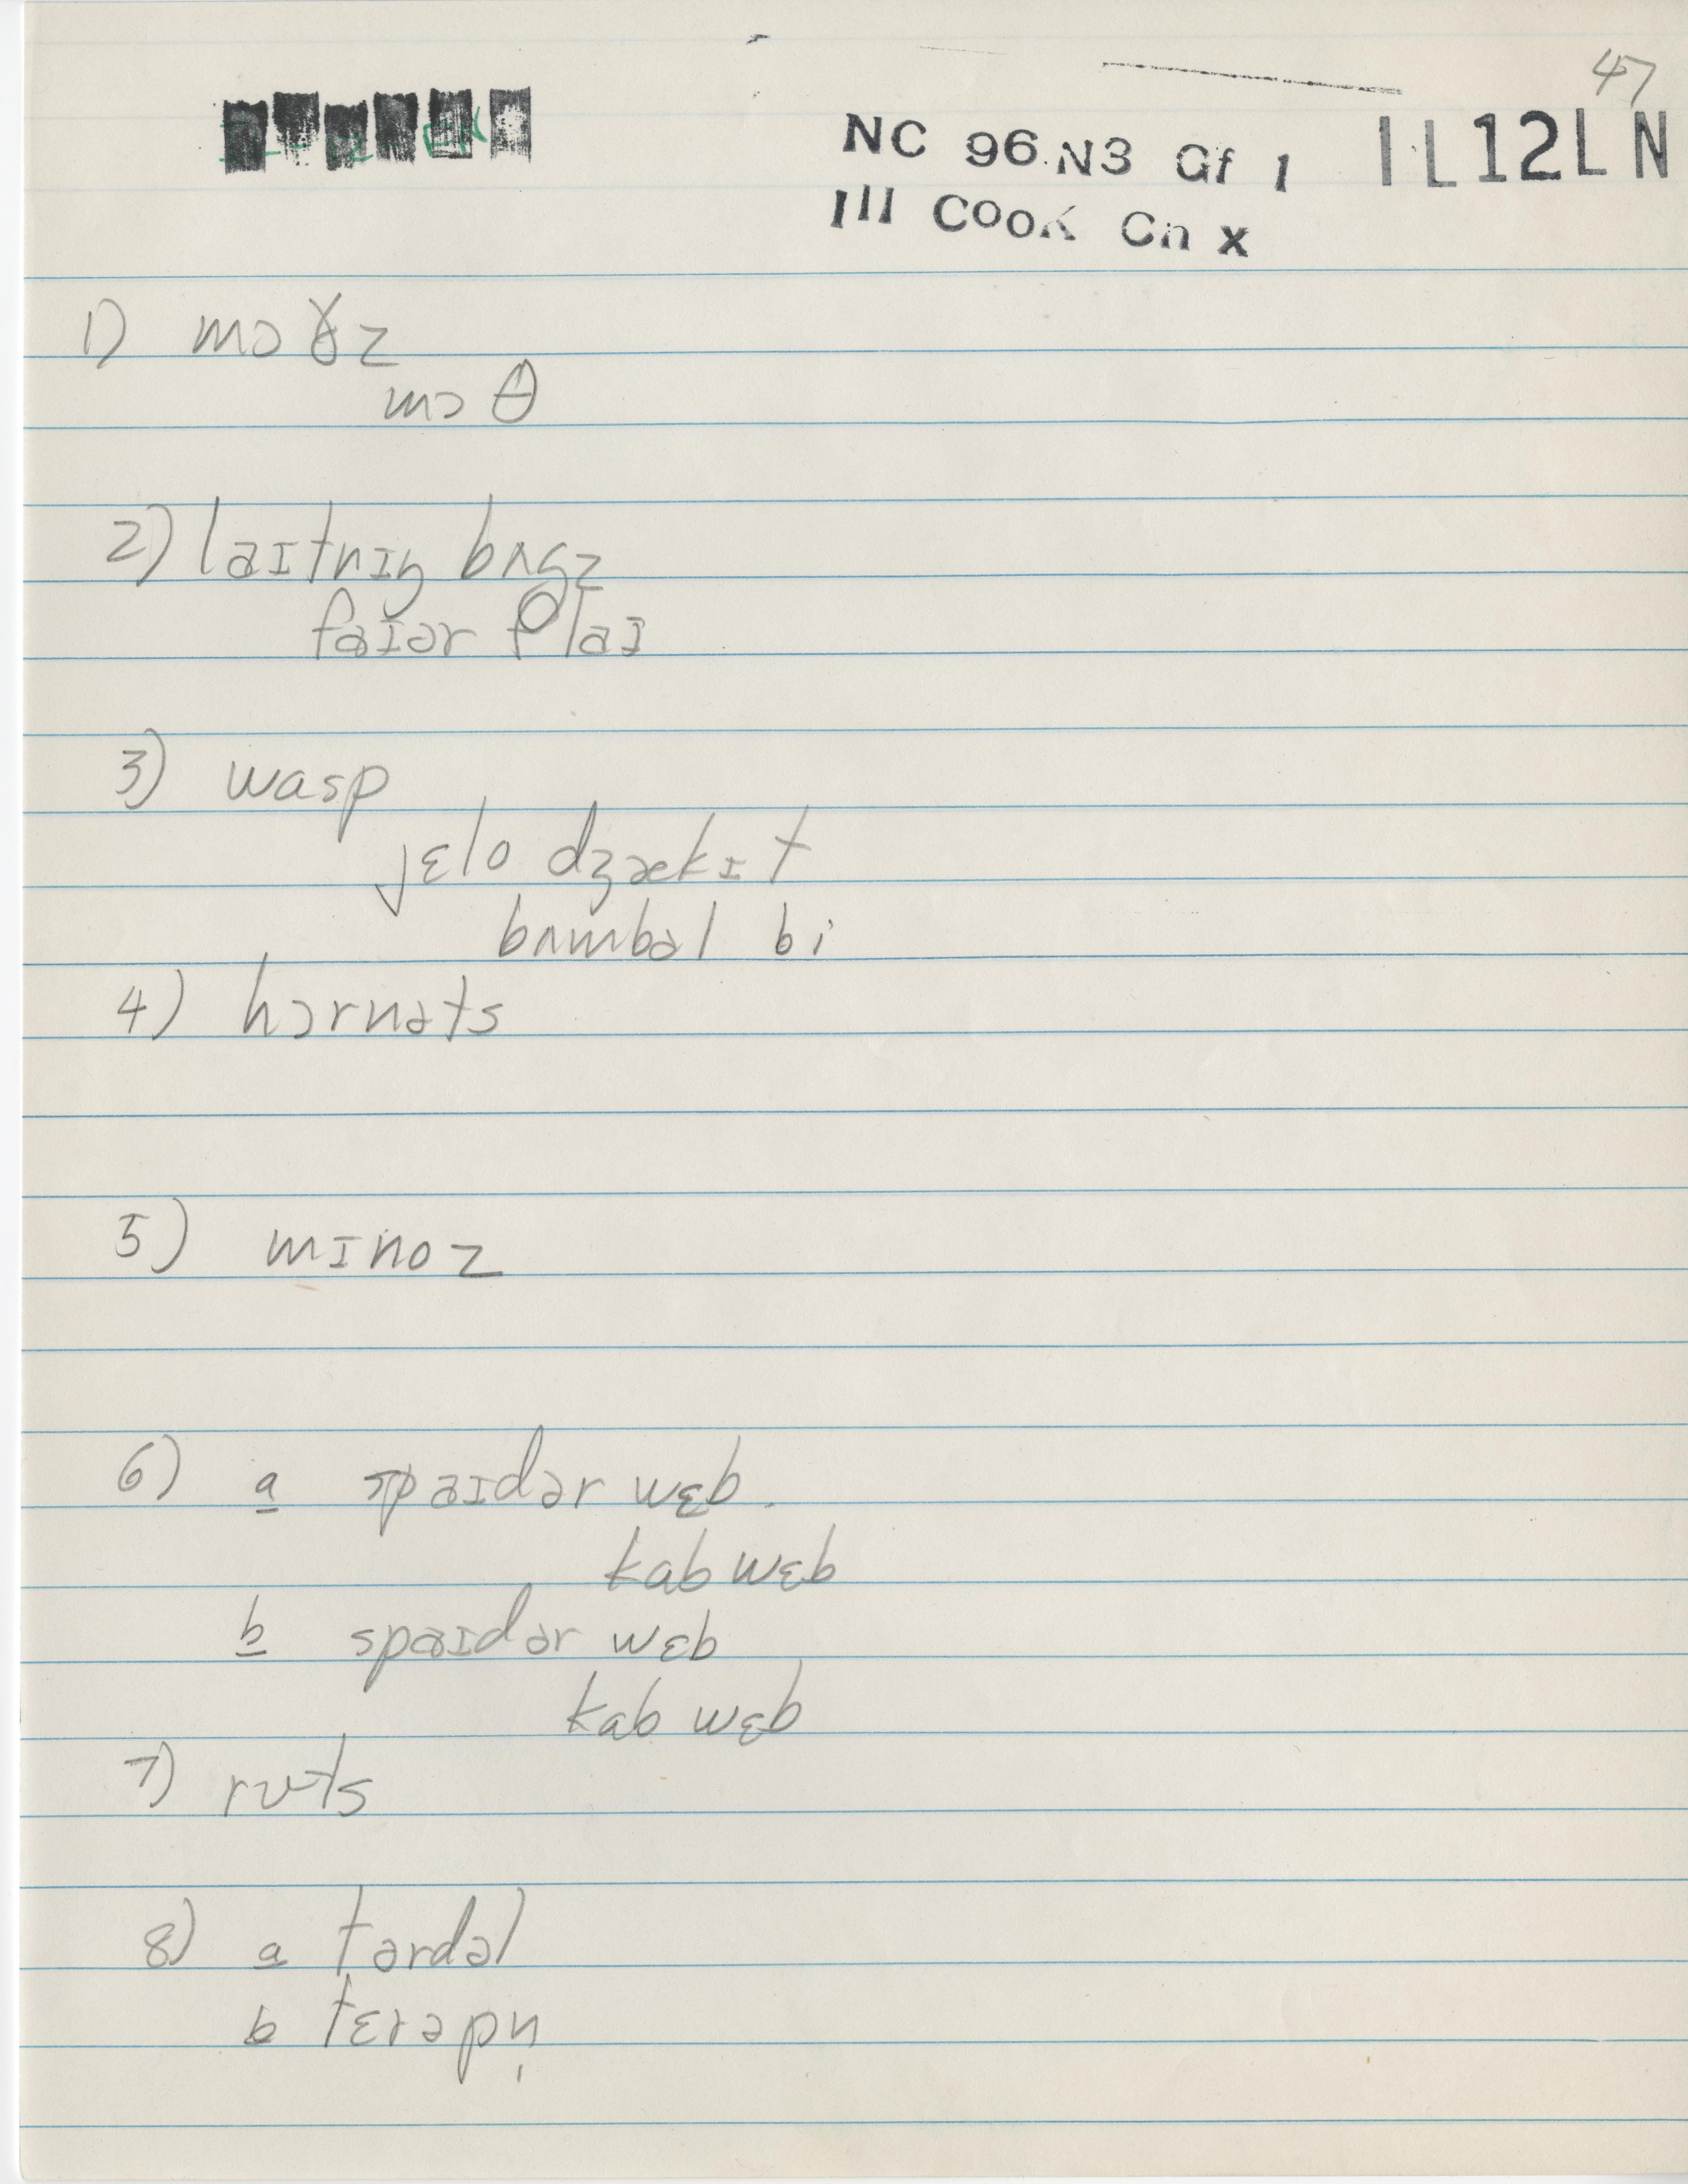 47
NC 96.N3 Gf 1 IL12LN
Ill Cook Cn x
1) mɔðz
mɔθ
2) laɪtnɪŋ bʌgz
faɪər flaɪ
3) wasp
jɛlo dʒækɪt
bʌmbəl bi
4) hɔrnəts
5) mɪnoz
6) a spaɪdər wɛb.
kab wɛb
b spaɪdər wɛb
kab wɛb
7) ruts
8) a tərdəl
b tɛrəpn̩